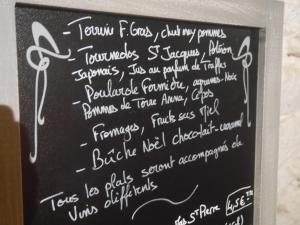 - Terrine F. Gras, chutney pommes
- Tournedos St Jacques, Potiron
Japonais, Jus au parfum de Truffes
- Poularde Fermière, agrumes-Noix
Pommes de Terre Anna, Cèpes
- Fromages, Fruits secs Miel
- Bûche Noël chocolat-caramel
Tous les plats seront accompagnés de
Vins différents
St Pierre 45€